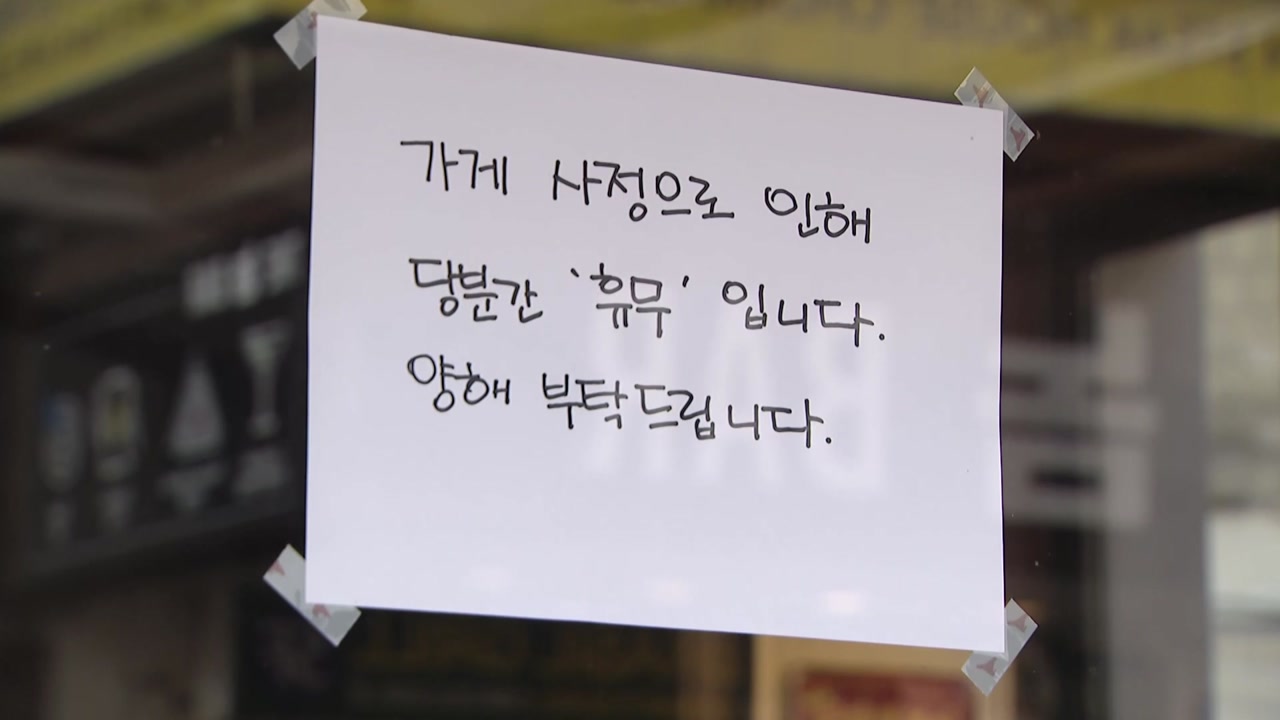 가게 사정으로 인해
당분간 '휴무' 입니다.
양해 부탁드립니다.
BAR